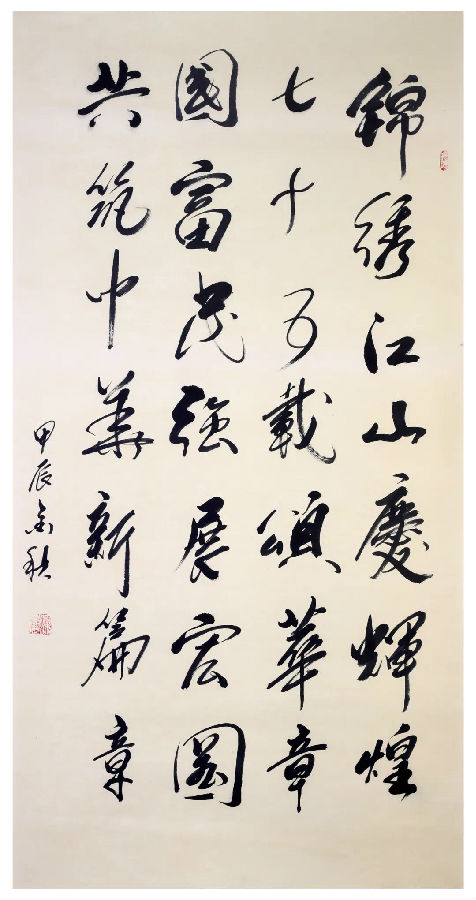 錦綉江山慶輝煌
七十五載頌華章
國富民強展宏圖
共筑中華新篇章
甲辰金秋